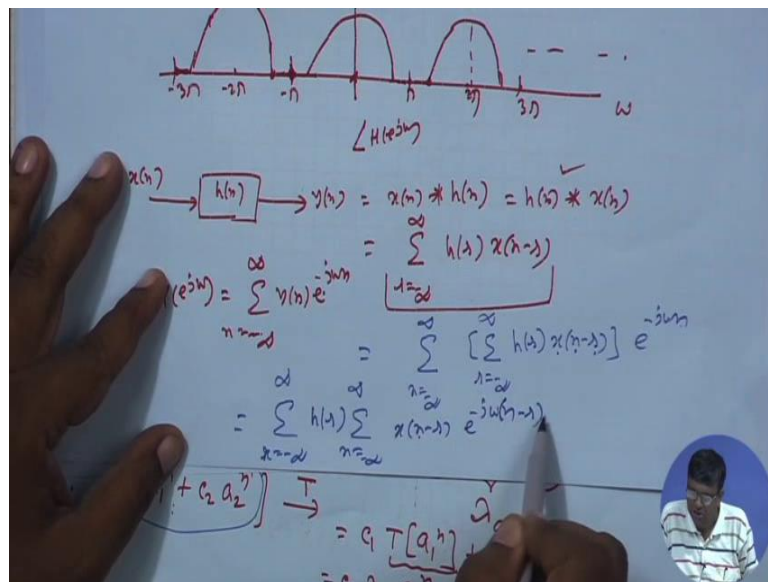 -3π -2π -π π 2π 3π ω
∠H(e^{jω})
x(n) → h(n) → y(n) = x(n) * h(n) = h(n) * x(n)
= ∑_{r=-∞}^{∞} h(r) x(n-r)
(e^{jω}) = ∑_{n=-∞}^{∞} y(n) e^{-jωn}
= ∑_{n=-∞}^{∞} [∑_{r=-∞}^{∞} h(r) x(n-r)] e^{-jωn}
= ∑_{r=-∞}^{∞} h(r) ∑_{n=-∞}^{∞} x(n-r) e^{-jω(n-r)}
+ c_2 a_2^n] T →
= c_1 T[a_1^n]